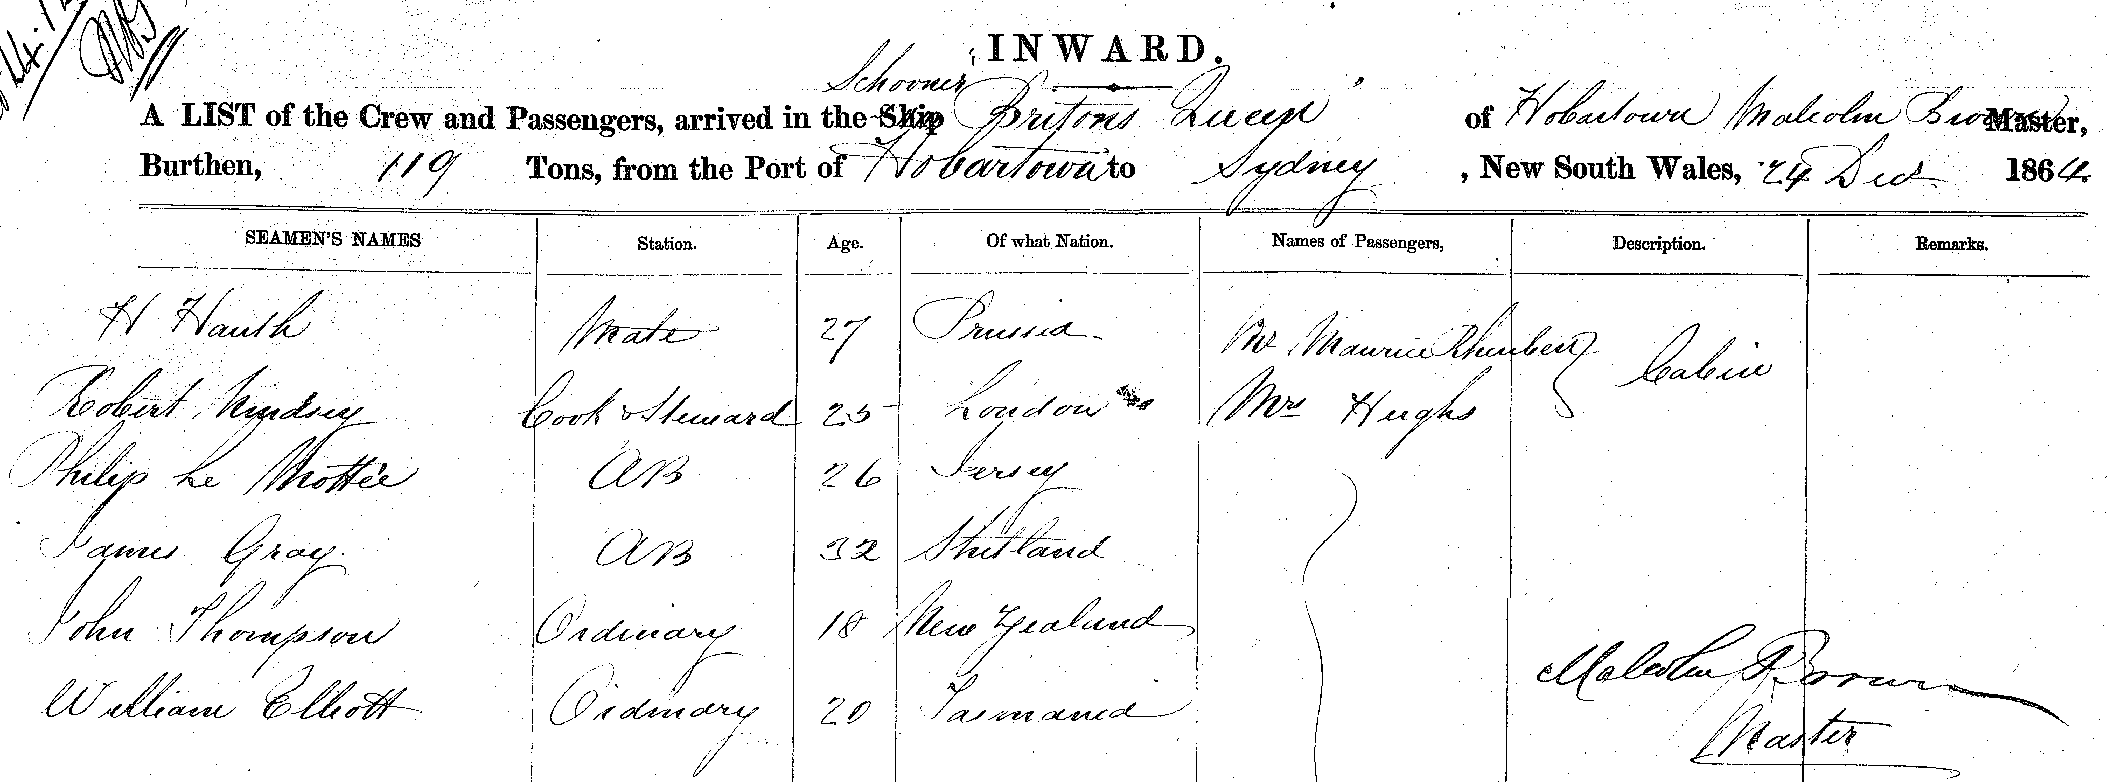 INWARD.
Schooner
A LIST of the Crew and Passengers, arrived in the Ship Britons Queen of Hobartown Malcolm Brown Master,
Burthen, 119 Tons, from the Port of Hobartown to Sydney, New South Wales, 24 Dec 1864.
SEAMEN'S NAMES Station. Age. Of what Nation. Names of Passengers, Description. Remarks.
H Mate 27 Prussia Mr Maurice Cabin
Robert Lindsey Cook & Steward 25 London Mrs Hughs
Philip Le Mottie AB 26 Jersey
James Gray AB 32 Shetland
John Thompson Ordinary 18 New Zealand
William Elliott Ordinary 20 Tasmania
Malcolm Brown
Master